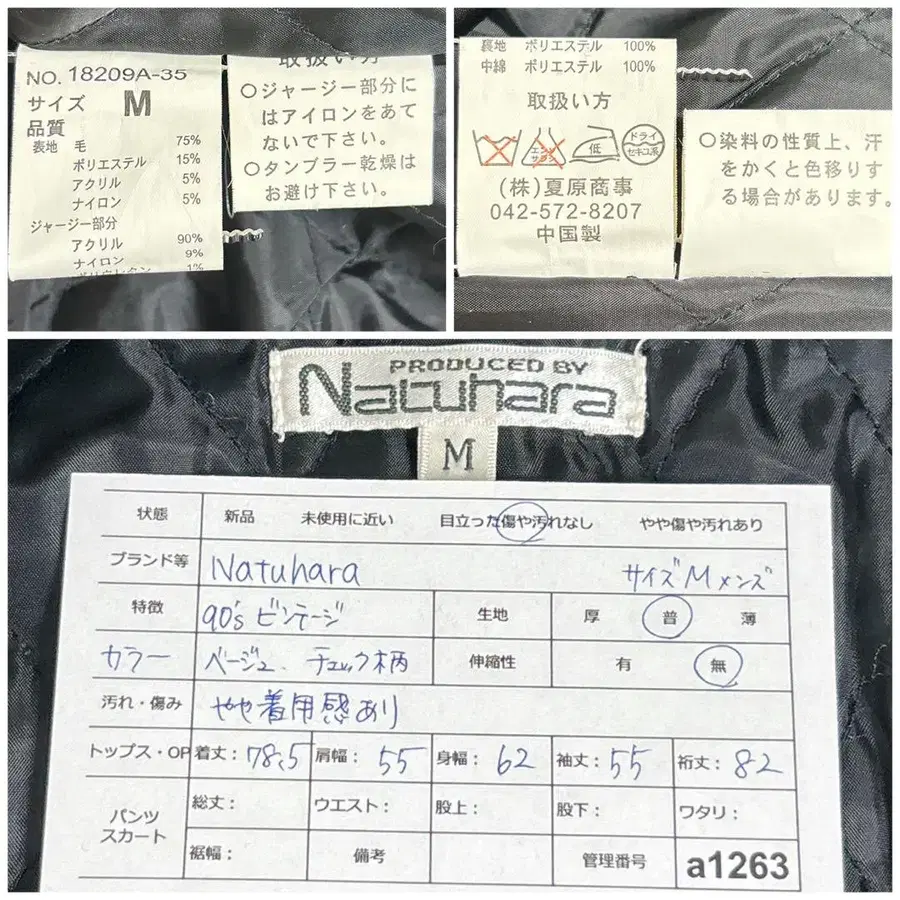 NO. 18209A-35
サイズ M
品質
表地 毛 75%
ポリエステル 15%
アクリル 5%
ナイロン 5%
ジャージー部分
アクリル 90%
ナイロン 9%
ポリウレタン 1%
取扱い方
○ジャージー部分に
はアイロンをあて
ないで下さい。
○タンブラー乾燥は
お避け下さい。
裏地 ポリエステル 100%
中綿 ポリエステル 100%
取扱い方
エンソサラシ 低 ドライ セキユ系
(株)夏原商事
042-572-8207
中国製
○染料の性質上、汗
をかくと色移りす
る場合があります。
PRODUCED BY
Natuhara
M
状態 新品 未使用に近い 目立った傷や汚れなし やや傷や汚れあり
ブランド等 Natuhara サイズM メンズ
特徴 90's ビンテージ 生地 厚 普 薄
カラー ベージュ、チェック柄 伸縮性 有 無
汚れ・傷み やや着用感あり
トップス・OP 着丈:78.5 肩幅:55 身幅:62 袖丈:55 裄丈:82
パンツ スカート 総丈: ウエスト: 股上: 股下: ワタリ:
裾幅: 備考 管理番号 a1263